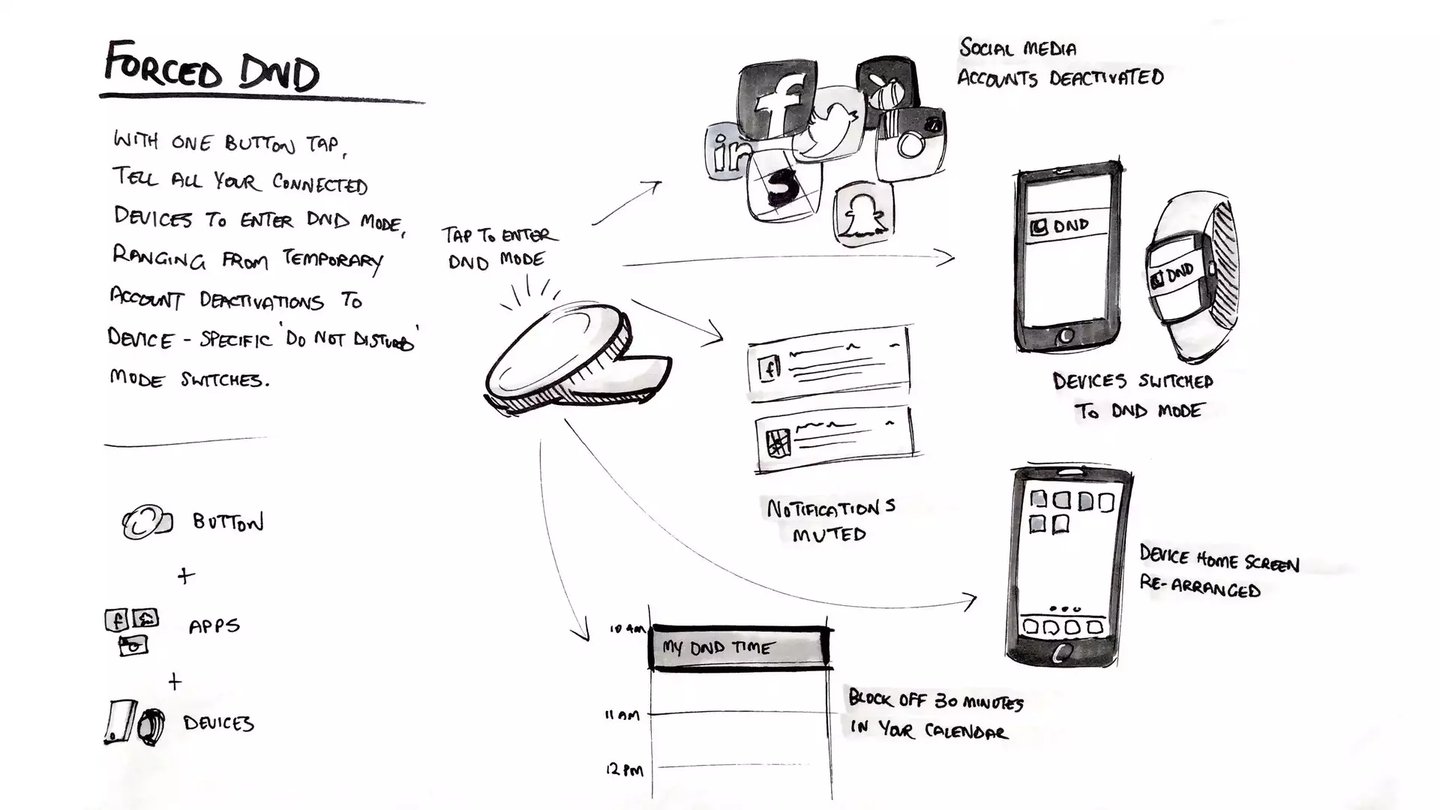 FORCED DND
WITH ONE BUTTON TAP,
TELL ALL YOUR CONNECTED
DEVICES TO ENTER DND MODE,
RANGING FROM TEMPORARY
ACCOUNT DEACTIVATIONS TO
DEVICE - SPECIFIC 'DO NOT DISTURB'
MODE SWITCHES.
BUTTON
+
f
APPS
+
DEVICES
TAP TO ENTER
DND MODE
SOCIAL MEDIA
ACCOUNTS DEACTIVATED
f
in
S
DND
DND
DEVICES SWITCHED
TO DND MODE
f
NOTIFICATIONS
MUTED
DEVICE HOME SCREEN
RE-ARRANGED
10 AM
MY DND TIME
11 AM
12 PM
BLOCK OFF 30 MINUTES
IN YOUR CALENDAR